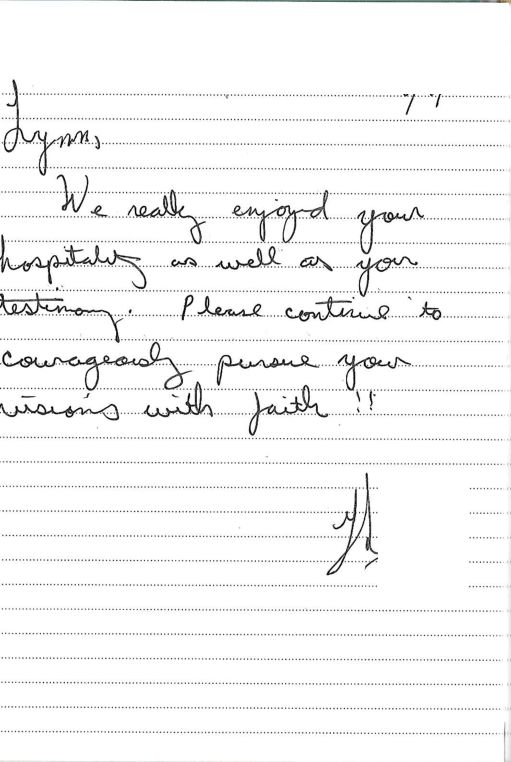 Lynn,
We really enjoyed your
hospitality as well as your
testimony. Please continue to
courageously pursue your
visions with faith !!